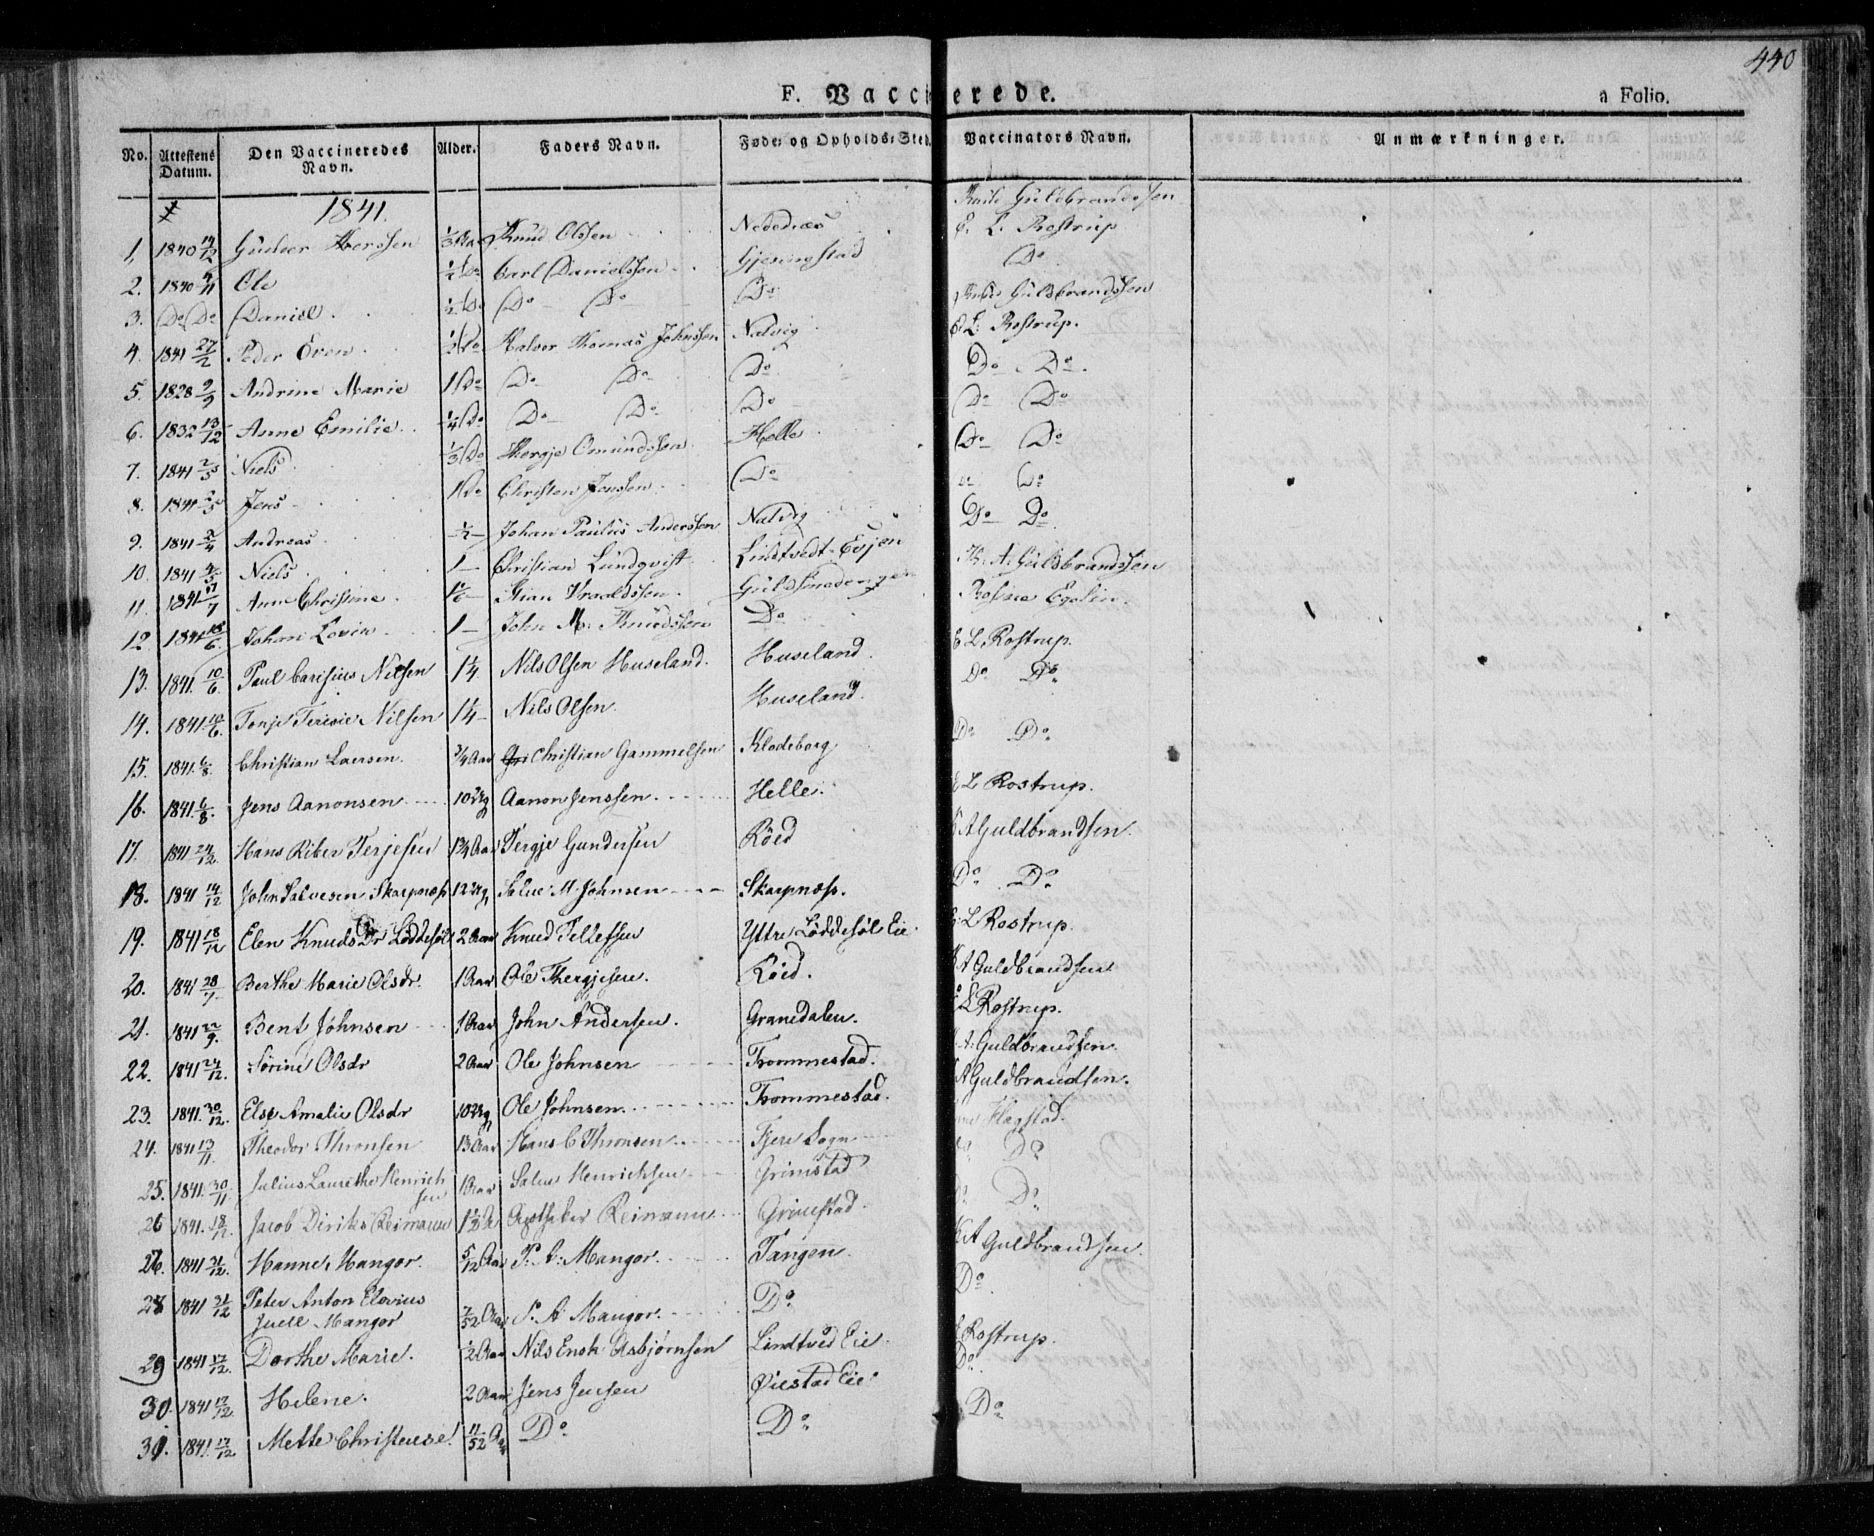 440
F. Vaccinerede.
a Folio.
No. Attestens Datum. Den Vaccineredes Navn. Alder. Faders Navn. Føde- og Opholds-Sted. Vaccinators Navn. Anmærkninger.
1841.
Guldbrandssen
1, 1840 14/12 Knud Olssen Nedenæs E. L. Rostrup
2. 1840 Ole 1/2 Do Carl Danielssen Do
3. Do Do Daniel 1/2 Do Do Do Do Guldbrandssen
4. 1841 27/2 Peder Even 1/2 Do Halvor Thomas Johnssen Natvig E. L. Rostrup.
5. 1828 9/9 Andrine Marie 1 Do Do Do Do Do Do
6. 1832 13/12 Anne Emilie 1/4 Do Do Do Do Do Do
7. 1841 2/5 Niels 1/3 Do Thergje Omundssen Helle Do Do
8. 1841 Jens 1 Do Christen Jenssen Do Do
9. 1841 2/4 Andreas 1/2 — Johan Paulus Anderssen Natvig Do Do
10. 1841 4/5 Niels 1 — Christian Lundqvist Lindtvedt-Evjen K. A. Guldbrandssen
11. 1841 /7 Anne Christine Stian Guldsmedengen
12 1841 18/6. Johan Lovin 1 — John M. Knudssen Do E. L. Rostrup.
13. 1841. 10/6. Paul Carisius Nilsen 1 1/4. Nils Olsen Huseland. Huseland. Do Do
14. 1841. 10/6. Tonje Teresie Nilsen 1 1/4 — Nils Olsen. Huseland. Do Do
15. 1841. 6/8. Christian Laersen. 3/4 Aar Christian Gammelsen Klodeborg
16. 1841. 6/8. Jens Aanonsen 10 Aanon Jenssen. Helle. E L Rostrup.
17. 1841 24/12. Hans Riber Terjesen 1 3/4 Aar Tergje Gundersen Röed K A Guldbrandsen.
18. 1841 14/12 John Salvesen Skarpnæs 12 Salve M. Johnsen Skarpnæs. Do Do
19. 1841 18/12 Elen Knuds Dr Löddesöl 2 Aar Knud Tellefsen Yttre Löddesöl Eie. E. L Rostrup.
20. 1841 28/7. Berthe Marie Olsdr. 1 Aar Ole Thergjesen. Röed. K A Guldbrandsen
21. 1841 22/9. Bent Johnsen 1 Aar John Andersen. Granedalen. E L Rostrup.
22. 1841 24/12. Sörine Olsdr 2 Aar Ole Johnsen Trommestad. K A. Guldbrandsen.
23. 1841. 30/12. Else Amalie Olsdr 10 Ole Johnsen Trommestad. K A Guldbrandsen.
24. 1841 13/11. Theodor Thronsen 13 Aar Hans C Thronsen Fjere Sogn
25. 1841. 30/11 Julius Laurithe Henrich
sen 1 Aar Salve Henrichsen Grimstad Do Do
26 1841. 18/12. Jacob Diriks Reimann 1 1/2 A Apotheker Reimann Grimstad. Do Do
26. 1841 31/12. Hanne Mangor. 5/12 Aar P. A. Mangor. Tangen K A Guldbrandsen.
28 1841 31/12 Peter Anton Elovius
Juell Mangor /52 Aar P. A. Mangor. Do Do
29 1841 17/12. Dorthe Marie. 1/2 Aar Nils Enok Asbjørnsen Lindtved Eie. E Rostrup.
30. 1841 17/12. Helene. 2 Aar Jens Jensen Øiestad Eie. Do
31. 1841. 17/12 Mette Christense. 11/52 Aar Do Do Do